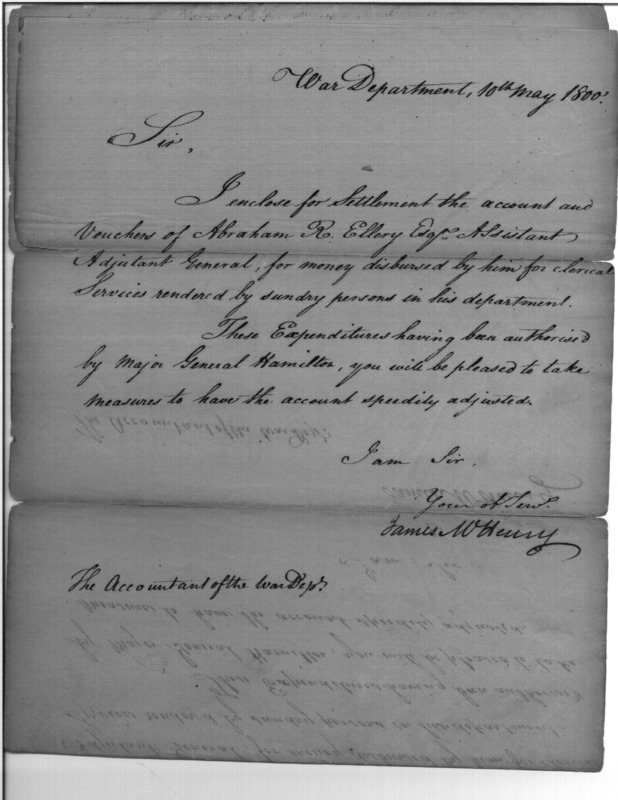 War Department, 10th May 1800.
Sir,
I enclose for Settlement the account and
Vouchers of Abraham R. Ellery Esqr. Assistant
Adjutant General, for money disbursed by him for clerical
Services rendered by sundry persons in his department.
These Expenditures having been authorised
by Major General Hamilton, you will be pleased to take
measures to have the account speedily adjusted.
I am Sir.
Your ob Serv.
James McHenry
The Accountant of the War Dept.